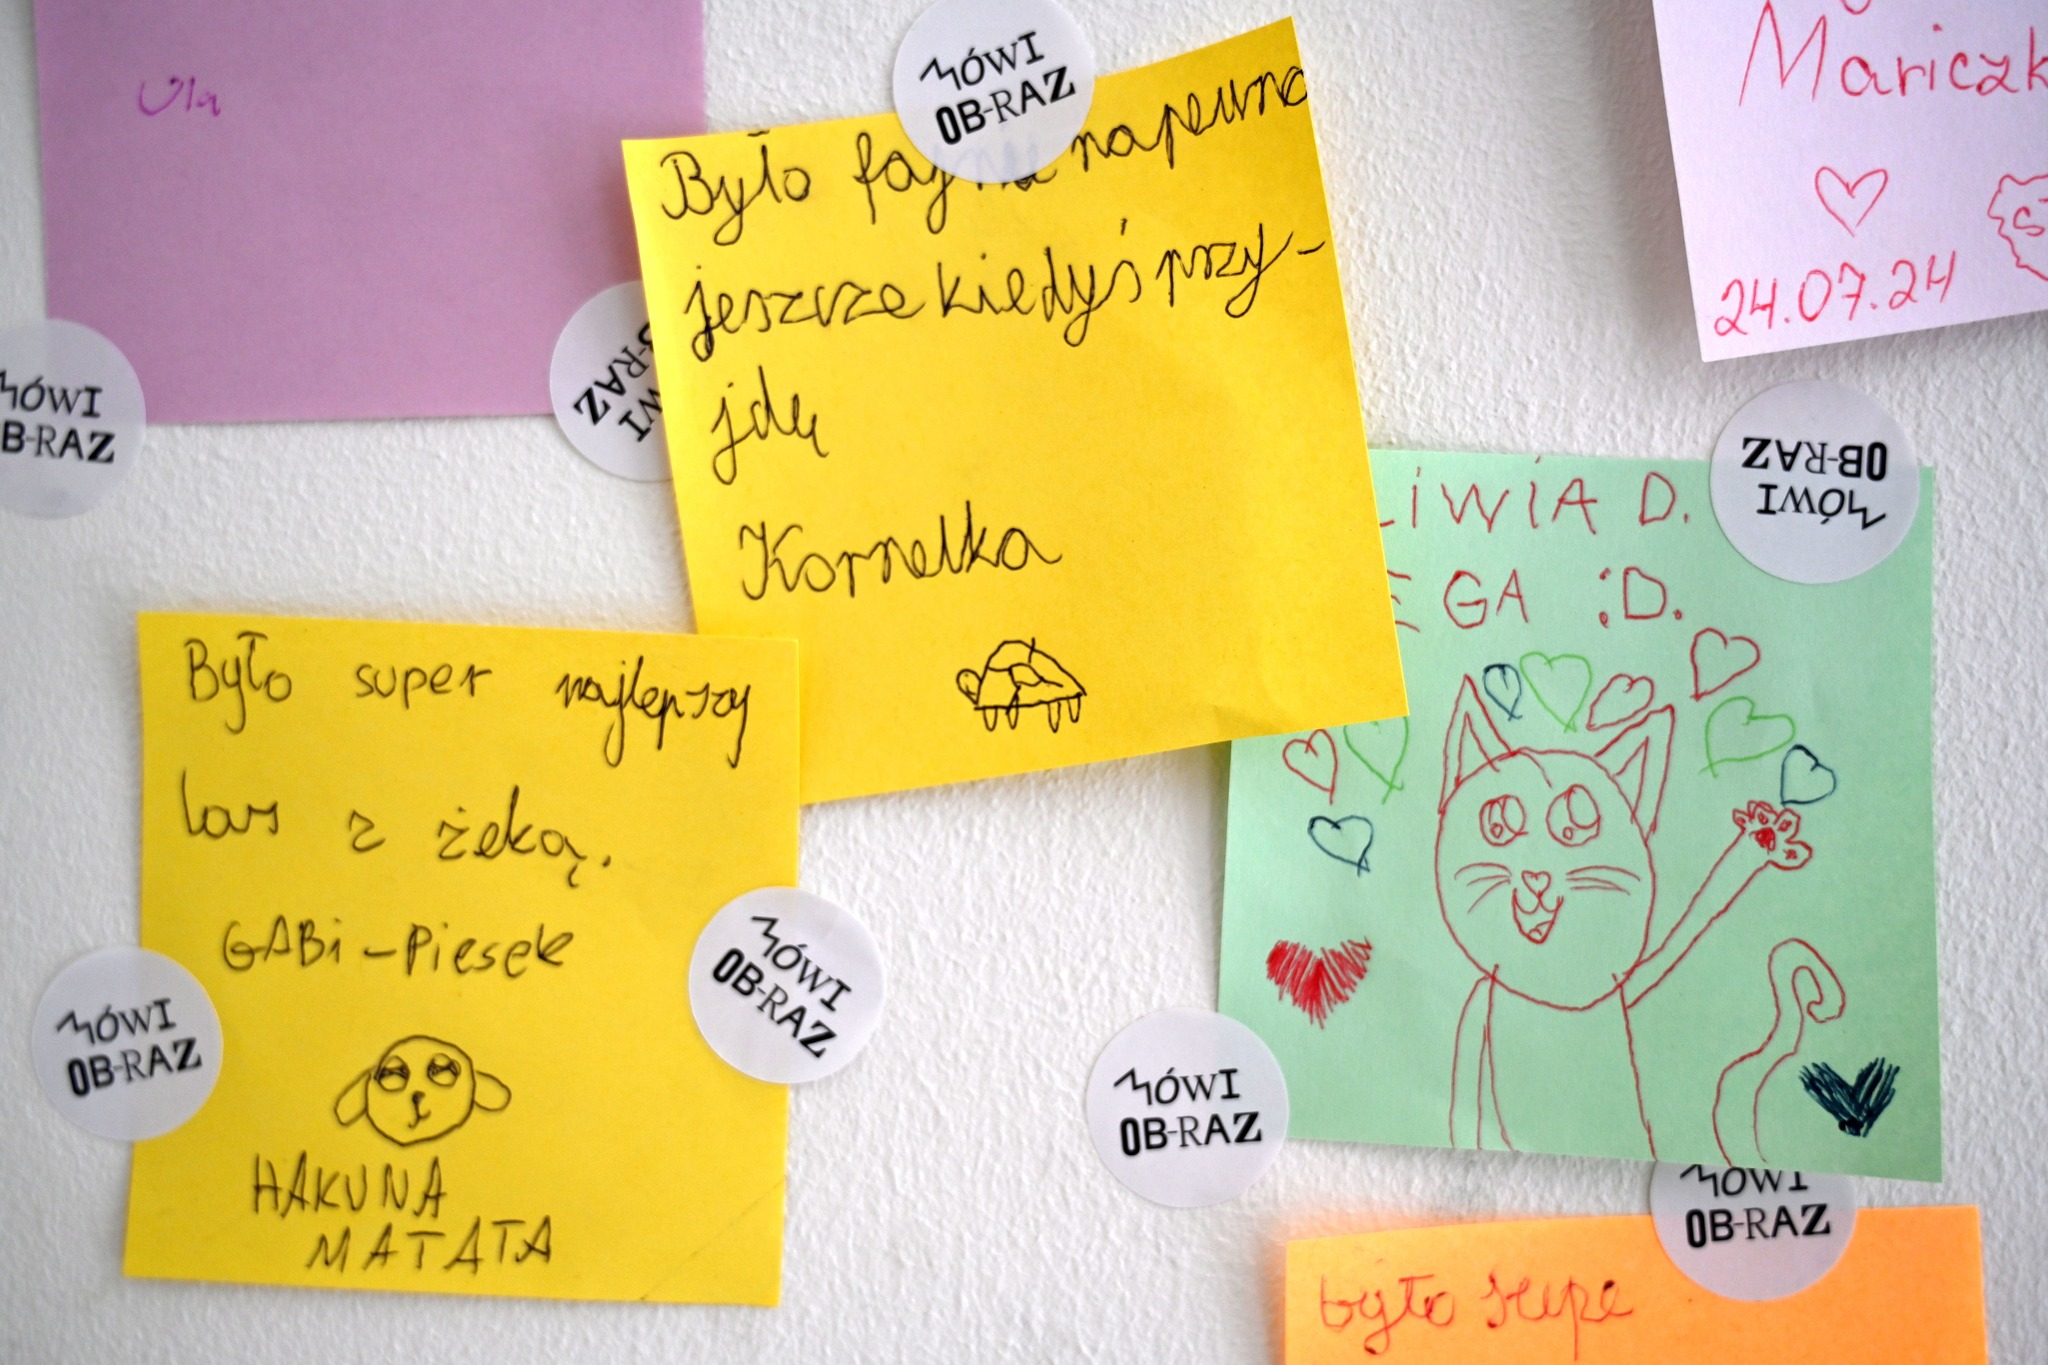 Ula
MÓWI
OB-RAZ
MÓWI
OB-RAZ
MÓWI
OB-RAZ
Było fajnie napewno
jeszcze kiedyś przy-
jdę
Kornelka
Mariczk
24.07.24
MÓWI
OB-RAZ
LIWIA D.
EGA :D.
Było super najlepszy
las z żeką.
GABi - Piesek
HAKUNA
MATATA
MÓWI
OB-RAZ
MÓWI
OB-RAZ
MÓWI
OB-RAZ
MÓWI
OB-RAZ
było supe